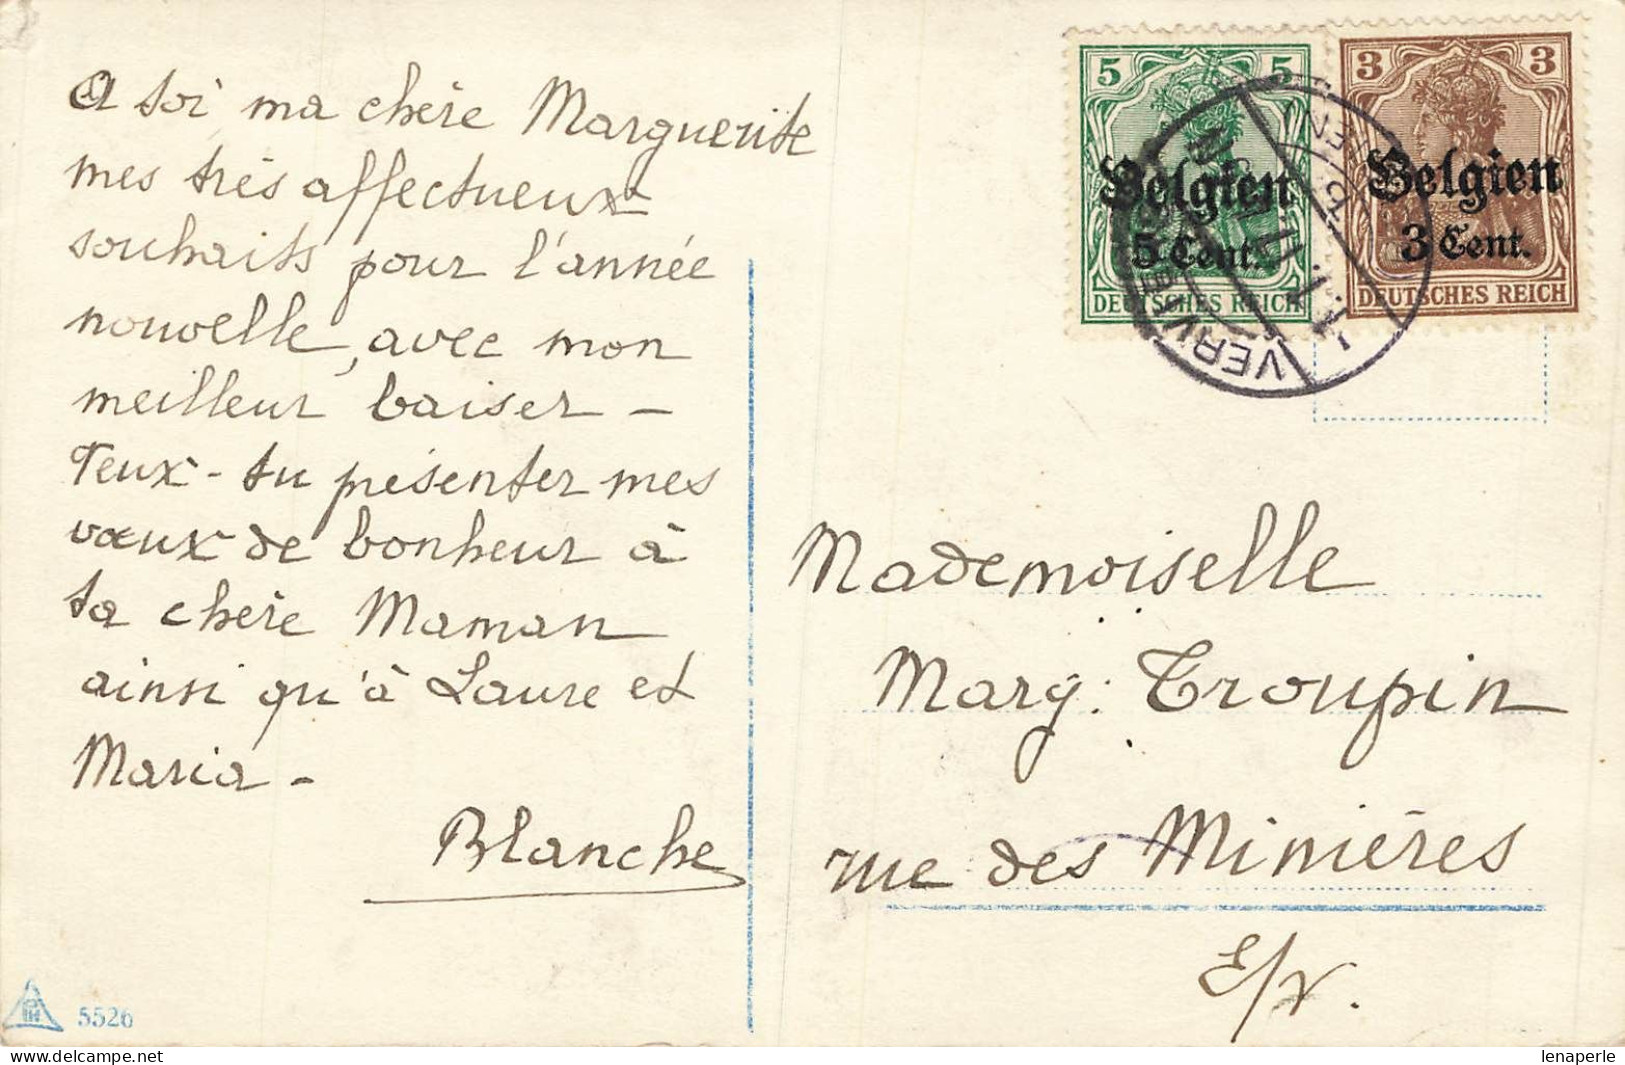 A toi ma chère Marguerite
mes très affectueux
souhaits pour l'année
nouvelle, avec mon
meilleur baiser -
Veux-tu présenter mes
vœux de bonheur à
ta chère Maman
ainsi qu'à Laure et
Maria -
Blanche
5526
5 5
Belgien
5 Cent.
DEUTSCHES REICH
3 3
Belgien
3 Cent.
DEUTSCHES REICH
VERVIERS
Mademoiselle
Marg: Troupin
rue des Minières
E/V.
lenaperle